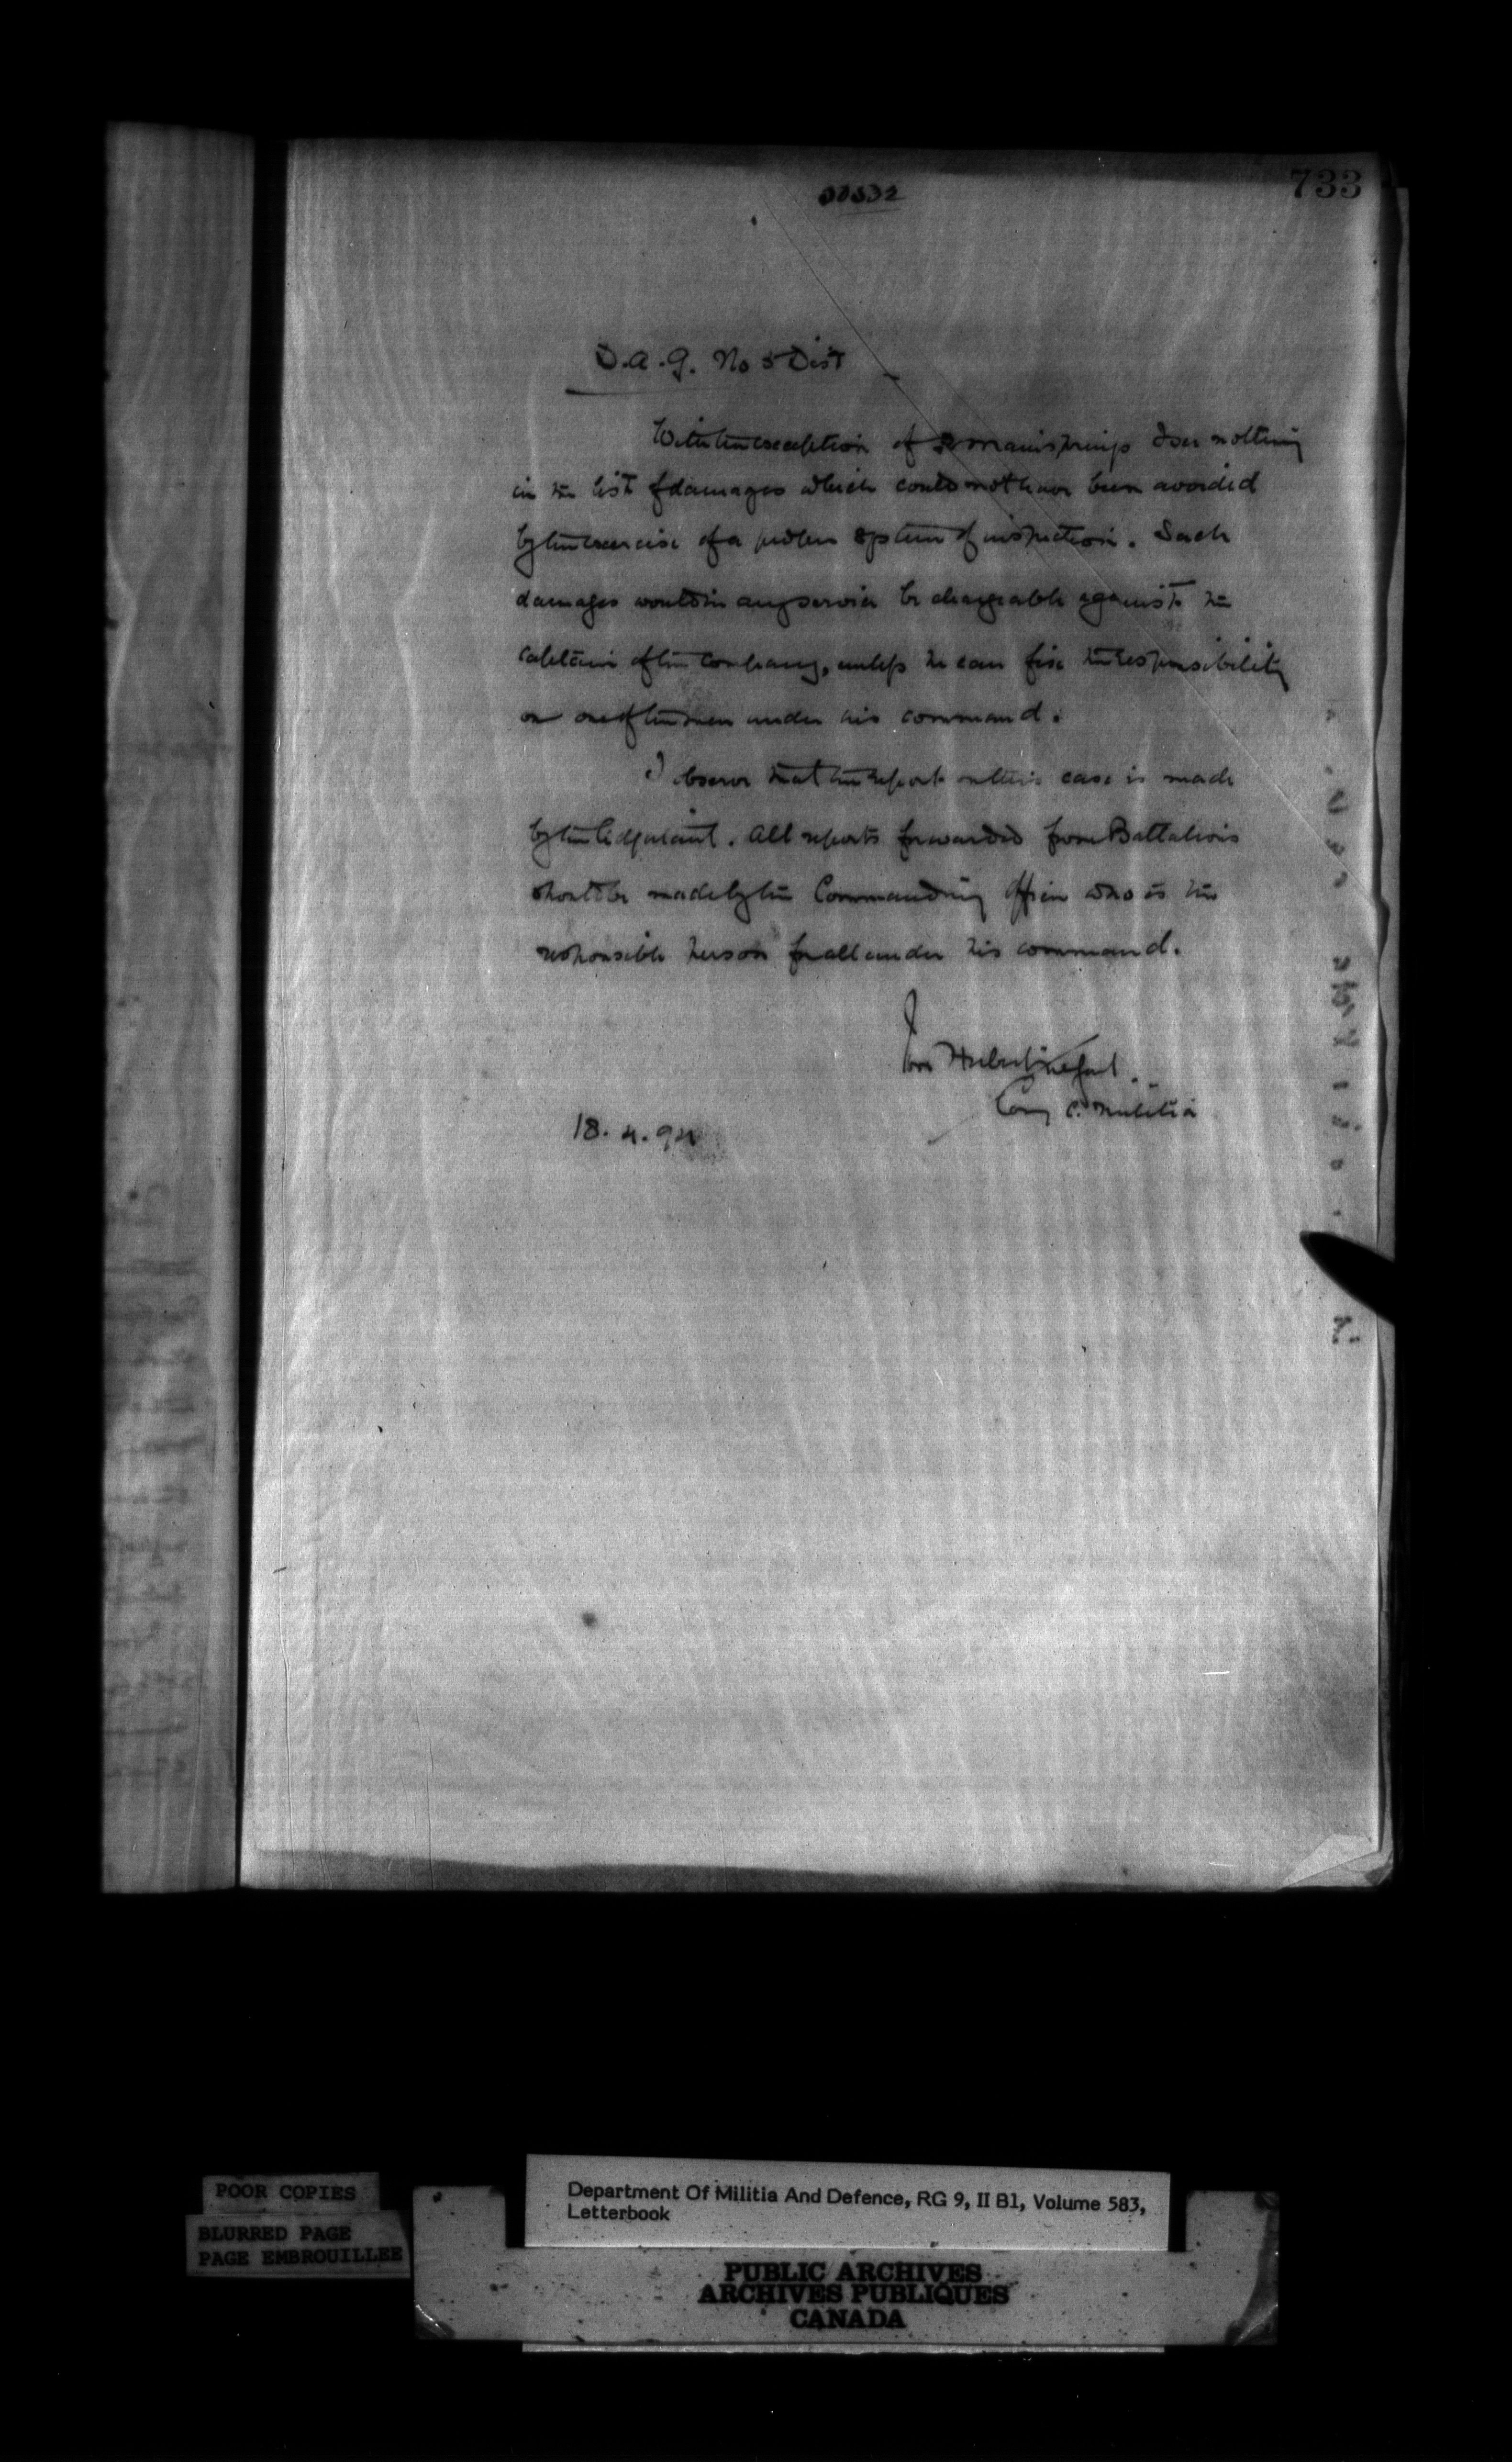 733
D.A.G. No 5 Dist
With the exception of mainsprings I see nothing
in the list of damages which could not have been avoided
by the exercise of a proper system of inspection. Such
damages would in any service be chargeable against the
captain of the company, unless he can fix the responsibility
on one of the men under his command.
I observe that the report on this case is made
by the Adjutant. All reports forwarded from Battalions
should be made by the Commanding Officer who is the
responsible person for all under his command.
Ivor Herbert
Comg C. Militia
18.4.94
POOR COPIES
BLURRED PAGE
PAGE EMBROUILLEE
Department Of Militia And Defence, RG 9, II B1, Volume 583,
Letterbook
PUBLIC ARCHIVES
ARCHIVES PUBLIQUES
CANADA